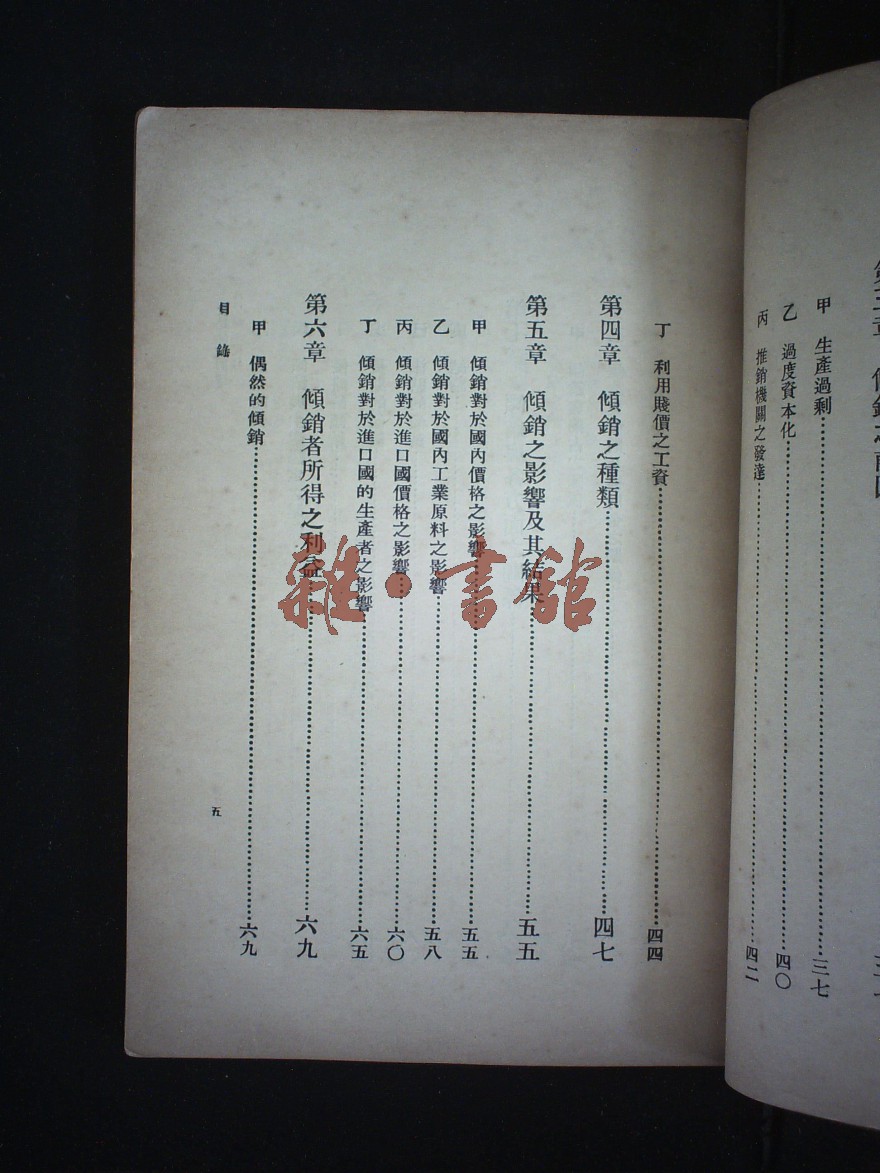 甲　生產過剩……三七
乙　過度資本化……四〇
丙　推銷機關之發達……四二
丁　利用賤價之工資……四四
第四章　傾銷之種類……四七
第五章　傾銷之影響及其結果……五五
甲　傾銷對於國內價格之影響……五五
乙　傾銷對於國內工業原料之影響……五八
丙　傾銷對於進口國價格之影響……六〇
丁　傾銷對於進口國的生產者之影響……六五
第六章　傾銷者所得之利益……六九
甲　偶然的傾銷……六九
目錄
五
雜·書館